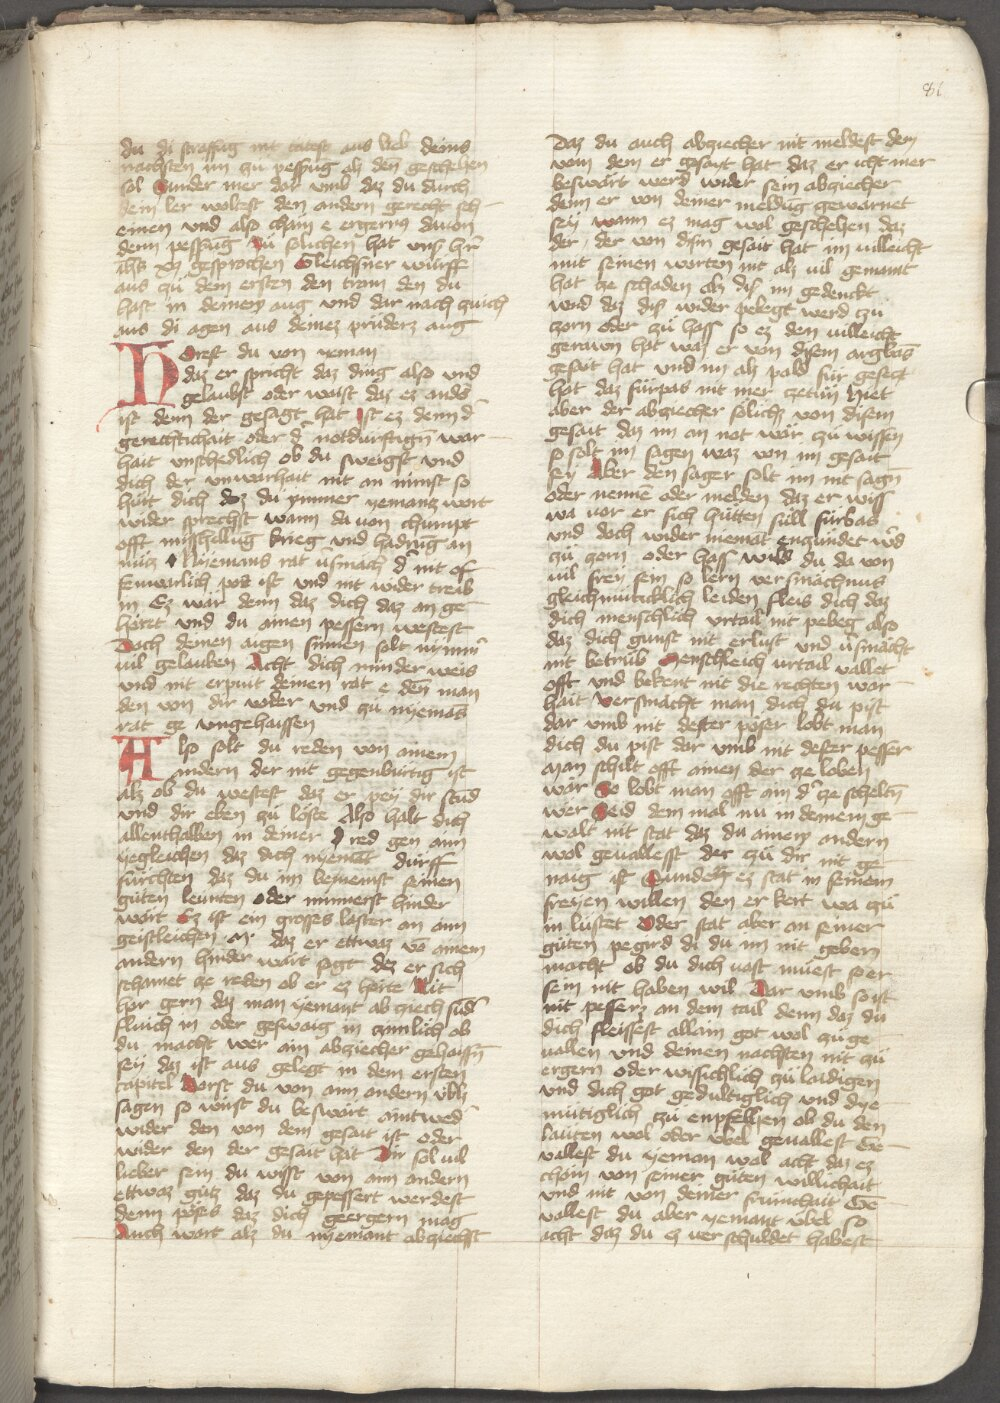 81
du di straffūg nit tätest aus lieb deins
nachsten im zu pessrūg alz den geschehen
sol Sunder mer dar vmb daz du durch
dein ler woltest den andern gerecht sch
einen vnd also cham e ergerung dauon
denn pessrūg Zu solichen hat vns h̄r
ih̄s xp̄s gesprochen Gleichsner würff
aus zu dem ersten den tram den du
hast in deinem aug vnd dar nach zuich
aus di agen aus deinez prüderz aug
Horest du von yeman
daz er spricht daz ding also vnd
gelaubst oder waist daz ez and̄s
ist denn der gesagt hat Ist ez denn d̄
gerechtichait oder d̄ notdurftign̄ war
hait vnschedlich ob du sweigst vnd
dich der vnwarhait nit an nimst so
hüt dich daz du ymmer yemantz wort
wider sprechst wann da von chumpt
offt misshellūg krieg vnd hadrūg an
nütz Nyemans rat v̄smach d̄ nit of
fenwarlich pos ist vnd nit wider treib
in Ez wär denn daz dich daz an ge
höret vnd du ainen pessern westest
Doch deinen aigen sinnen solt nym̄er
vil gelauben Acht dich minder weis
vnd nit erpiut deinen rat e den̄ man
den von dir voder vnd zu nyemās
rat ge vngehaissen
Also solt du reden von ainem
andern der nit gegenbürtig ist
alz ob du westest daz er pey dir stūd
vnd dir eben zu löste Also halt dich
allenthalben in deiner red gen aim
yegleichen daz dich nyemāt dürff
fürchten daz du im benemst seinen
guten leunten oder minnerst hinder
wört Ez ist ein grosses laster an aim
geistleichen m̄ daz er ettwaz vō ainem
andern hinder wärt sagt dez er sich
schamet ze reden ob er ez hörte Nit
hör gern daz man yemant ab ziech sūd̄
fluich in oder geswaig in zimlich ob
du macht wer ain abziecher gehaissn̄
sey daz ist aus gelegt in dem ersten
capitel Horst du von aim andern vbls
sagen so wirst du beswärt aintwed̄
wider den von dem gesait ist oder
wider den der gesait hat Dir sol vil
lieber sein du wisst von aim andern
ettwaz gutz daz du gepessert werdest
denn pöses daz dich geergern mag
Auch wart alz du nyemant abziechst
Daz du auch abziecher nit meldest dem
von dem er gesait hat daz er icht mer
beswärt werd wider sein abziecher
denn er von deiner meldūg gewarnet
sey wann ez mag wol geschehen daz
der der von dism gesait hat im villeicht
mit seinen worten nit alz vil gemaint
hat ze schaden alz diſ im gedenckt
vnd daz diſ wider pelegt werd zu
zorn oder zu hass so ez den villeicht
gerawn hat waz er von disem argwās
gesait hat vnd im alz pald für gesetzt
hat daz fürpas nit mer zetun Hiet
aber der abziecher solichz von disem
gesait daz im an not wär zu wissen
so solt im sagen waz von im gesait
sey Aber den sager solt im nit sagn̄
oder nenne oder melden daz er wiss
wa vor er sich hütten süll fürbas
vnd doch wider niemāt enzündet w̄d
zu zorn oder hass wild du da von
vil frey sein so lern versmächnus
gleichmütticklich leiden fleis dich daz
dich menschlich vrtail nit peweg also
daz dich gunst nit erlüst vnd v̄smächt
nit betrüb Menschleich vrtail vallet
offt vnd bekent nit die rechten war
hait Versmächt man dich du pist
dar vmb nit dester pöser lobt man
dich du pist dar vmb nit dester pesser
Man schilt offt ainen der ze loben
wär So lobt man offt ain d̄ ze scheltn̄
wer Seid dem mal nu in deinem ge
walt nit stat daz du ainem andern
wol geuallesst der zu dir nit ge
naig ist Sunder ez stat in seinem
freyen willen den er kert wa zu
in lüstet Oder stat aber an seiner
guten pegird di du im nit gebern
macht ob du dich vast müest so er
sein nit haben wil Dar vmb so ist
nit pessers an dem tail denn daz du
dich fleissest allain got wol zu ge
uallen vnd deinen nachsten nit zu
ergern oder wissichlich zu laidigen
vnd dich got gedultiglich vnd dye
mütiglich zu enpfelhen ob du den
läuten wol oder vbel geuallest Ge
vallest du yeman wol acht daz ez
chöm von seiner guten willichait
vnd nit von deiner frümchait Ge
vallest du aber yemant vbel so
acht daz du ez verschuldet habest